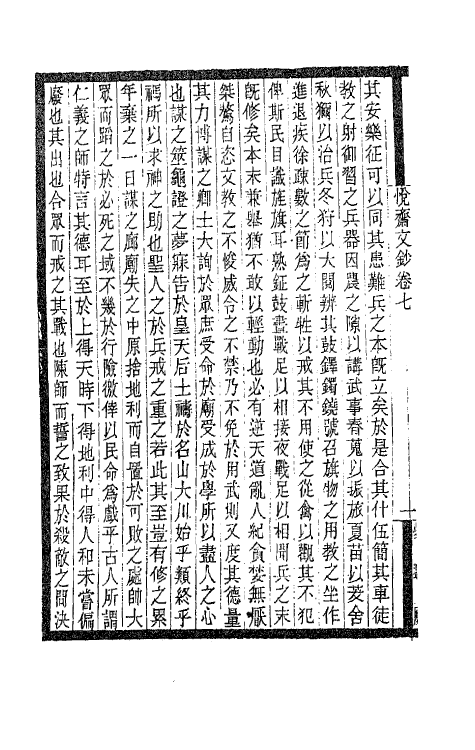 悅齋文鈔卷七
其安樂征可以同其患難兵之本旣立矣於是合其什伍簡其車徒
教之射御習之兵器因農之隙以講武事春蒐以振旅夏苗以茇舍
秋獮以治兵冬狩以大閱辨其鼓鐸鐲鐃號召旗物之用教之坐作
進退疾徐疎數之節爲之斬牲以戒其不用使之從禽以觀其不犯
俾斯民目識旌旗耳熟鉦鼓晝戰足以相接夜戰足以相聞兵之末
旣修矣本末兼舉猶不敢以輕動也必有逆天道亂人紀貪婪無厭
桀驁自恣文教之不悛威令之不禁乃不免於用武則又度其德量
其力博謀之卿士大詢於眾庶受命於廟受成於學所以盡人之心
也謀之筮龜證之夢寐告於皇天后土禱於名山大川始乎類終乎
禡所以求神之助也聖人之於兵戒之重之若此其至豈有修之累
年棄之一日謀之廊廟失之中原捨地利而自置於可敗之處師大
眾而蹈之於必死之域不幾於行險徼倖以民命爲戲乎古人所謂
仁義之師特言其德耳至於上得天時下得地利中得人和未嘗偏
廢也其出也合眾而戒之其戰也陳師而誓之致果於殺敵之間決